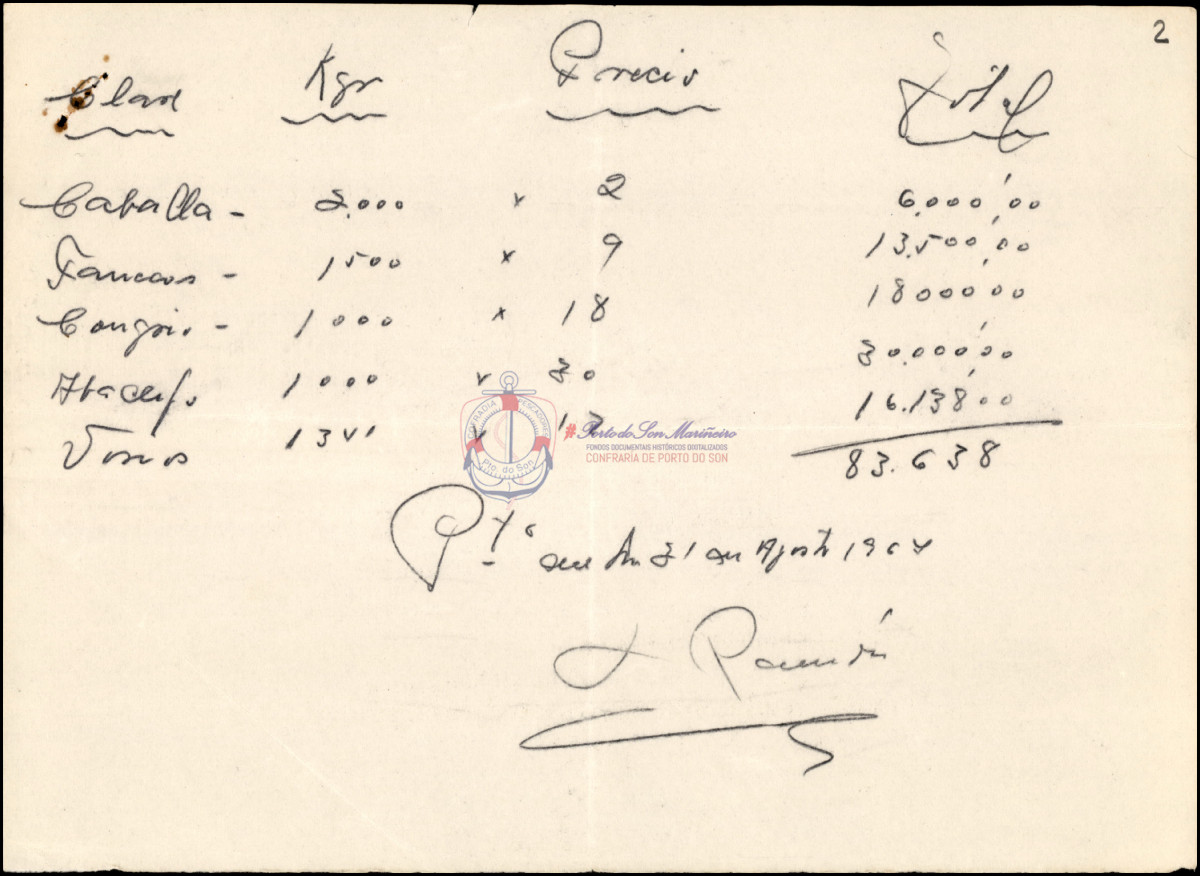 2
Clase Kgr Precio Total
Caballa - 3.000 x 2 6.000,00
Fanecas - 1500 x 9 13.500,00
Congrio - 1000 x 18 18000,00
Abadejo 1000 x 30 30.000,00
Varios 1341 x 16.138,00
83.638
COFRADIA PESCADORES
Pto. do Son
#Porto do Son Mariñeiro
FONDOS DOCUMENTAIS HISTÓRICOS DIXITALIZADOS
CONFRARÍA DE PORTO DO SON
Pto del Son 31 de Agosto 1964
Ramón